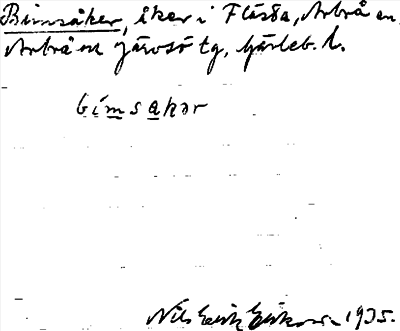 Bimsåker, åker i Flästa, Arbrå sn,
Arbrå och Järvsö tg, Gävleb. l.
bimsakər
Nils Erik Eriksson 1935.